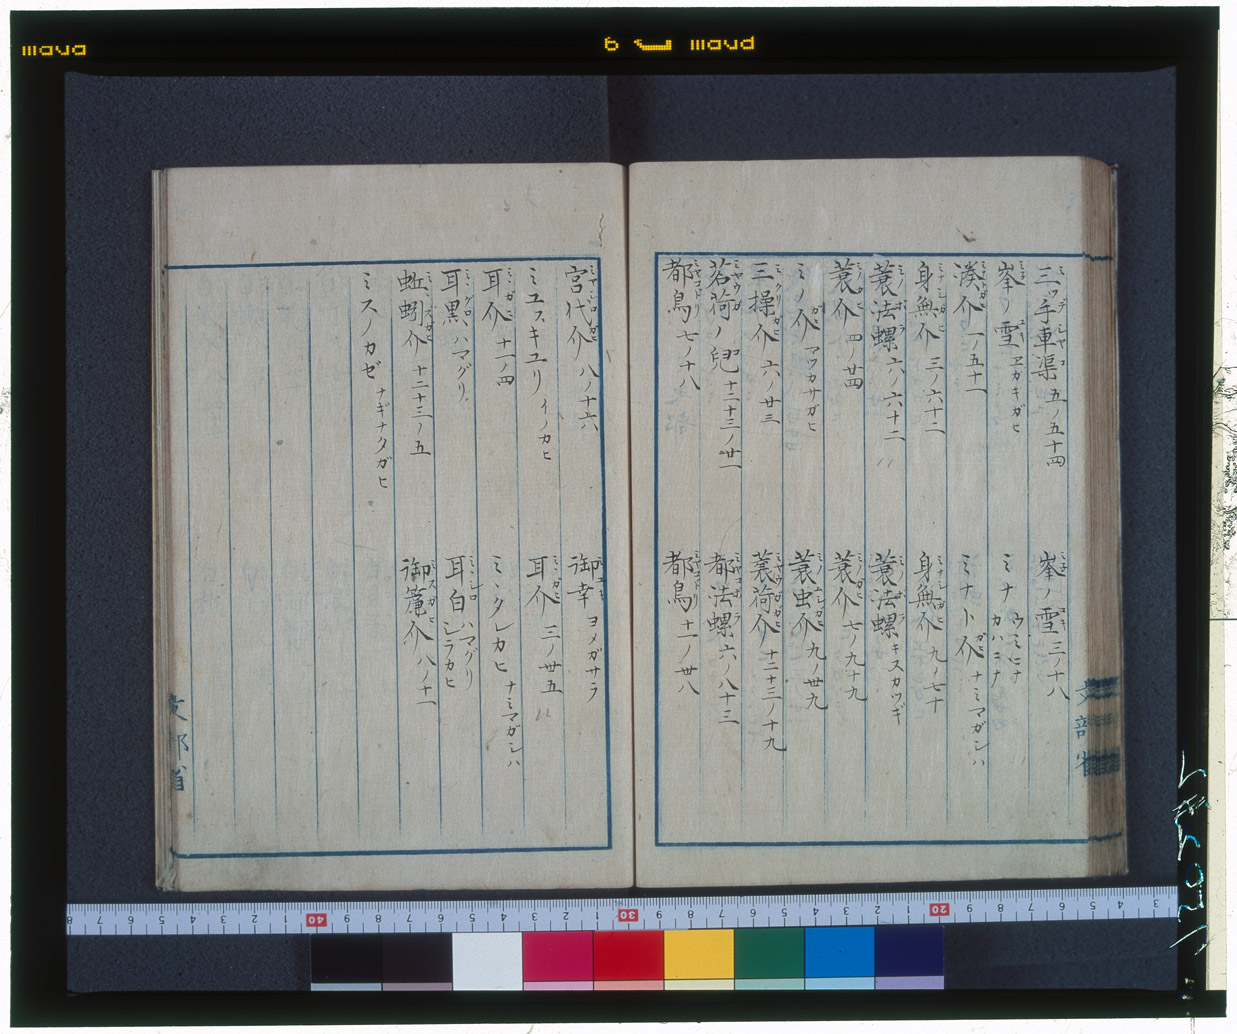 三ツ手車渠 五ノ五十四
峯ノ雪 三ノ十八
峯ノ雪 ヱカキガヒ
ミナ ウミニナ カハニナ
湊介 一ノ五十一
ミナト介 ナミマガシハ
身無介 三ノ六十二
身無介 九ノ七十
蓑法螺 六ノ六十二
蓑法螺 キスカツギ
蓑介 四ノ廿四
蓑介 七ノ九十九
ミノ介 アツカサガヒ
蓑虫介 九ノ卅九
三操介 六ノ廿三
蓑荷介 十二十三ノ十九
茗荷ノ兒 十二十三ノ廿一
都法螺 六ノ八十三
都鳥 七ノ十八
都鳥 十一ノ廿八
宮代介 八ノ十六
御幸 ヨメガサラ
ミユスキユリ イノカヒ
耳介 三ノ廿五
耳介 十一ノ四
ミヽタレカヒ ナミマガシハ
耳黒 ハマグリ
耳白 ハマグリ シラカヒ
蚯蚓介 十二十三ノ五
御簾介 八ノ十一
ミスノカゼ ナギナタガヒ
文部省
文部省